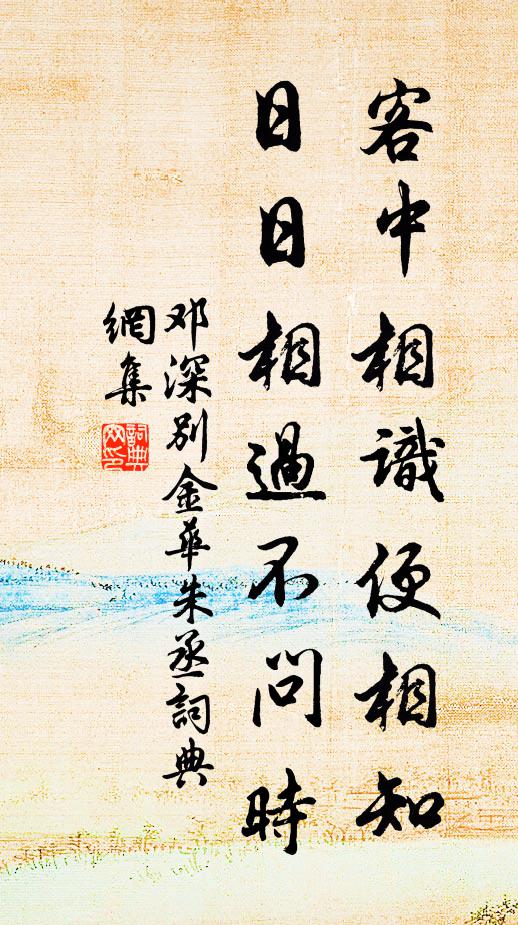 客中相識便相知
日日相過不問時
邓深别金華朱丞詞典
網集
詞典